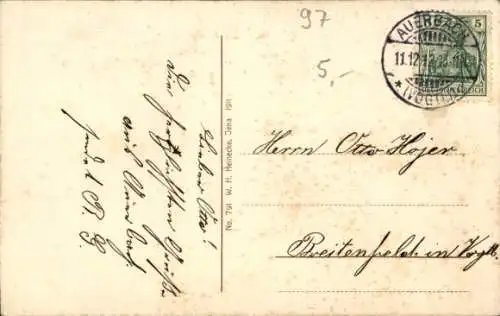 97
5,-
AUERBACH
11.12.
* (VOGTL.)
5
Lieber Otto!
Die herzlichsten Grüße
aus Auerbach
sendet P. G.
No. 791 W. H. Heinecke, Jena 1911
Herrn Otto Hojer
Breitenfeld in Vogtl.